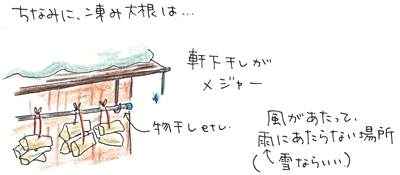 ちなみに、凍み大根は…
軒下干しが
メジャー
物干しetc.
風があたって、
雨にあたらない場所
(雪ならいい)